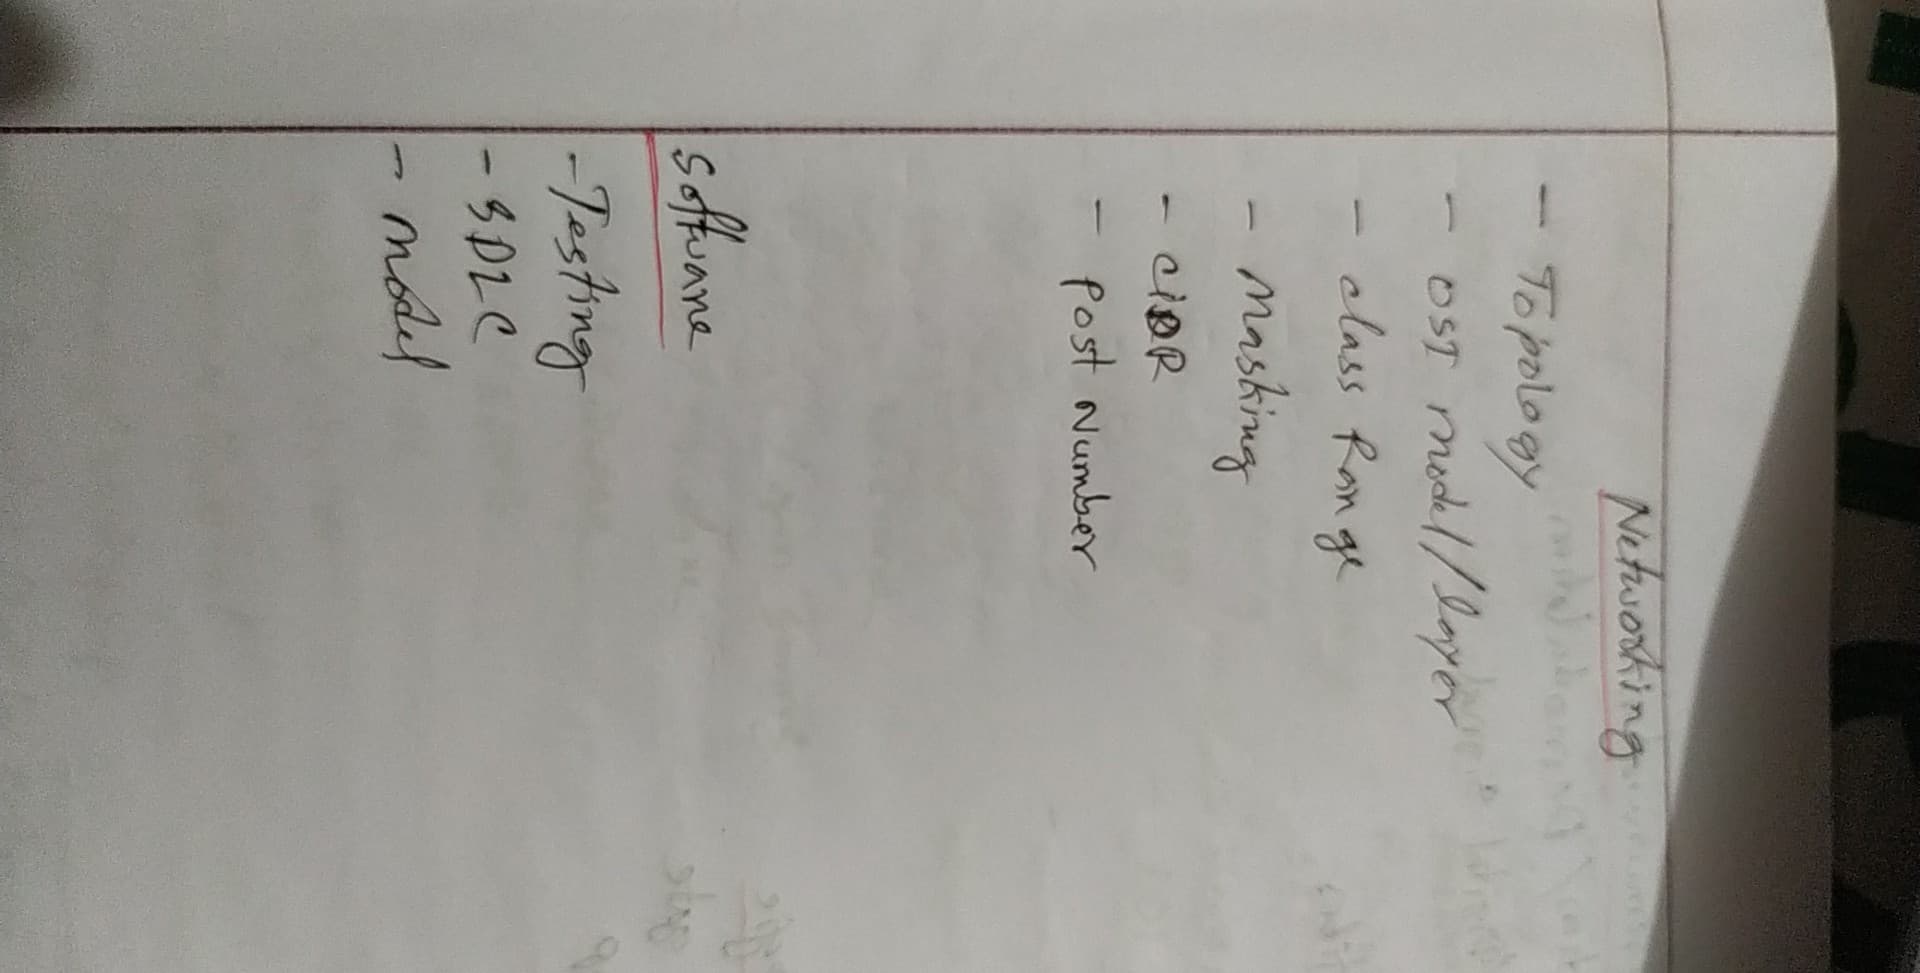 Networking
- Topology
- OSI model//layer
- class Range
- Masking
- CIDR
- Port Number
Software
- Testing
- SDLC
- model